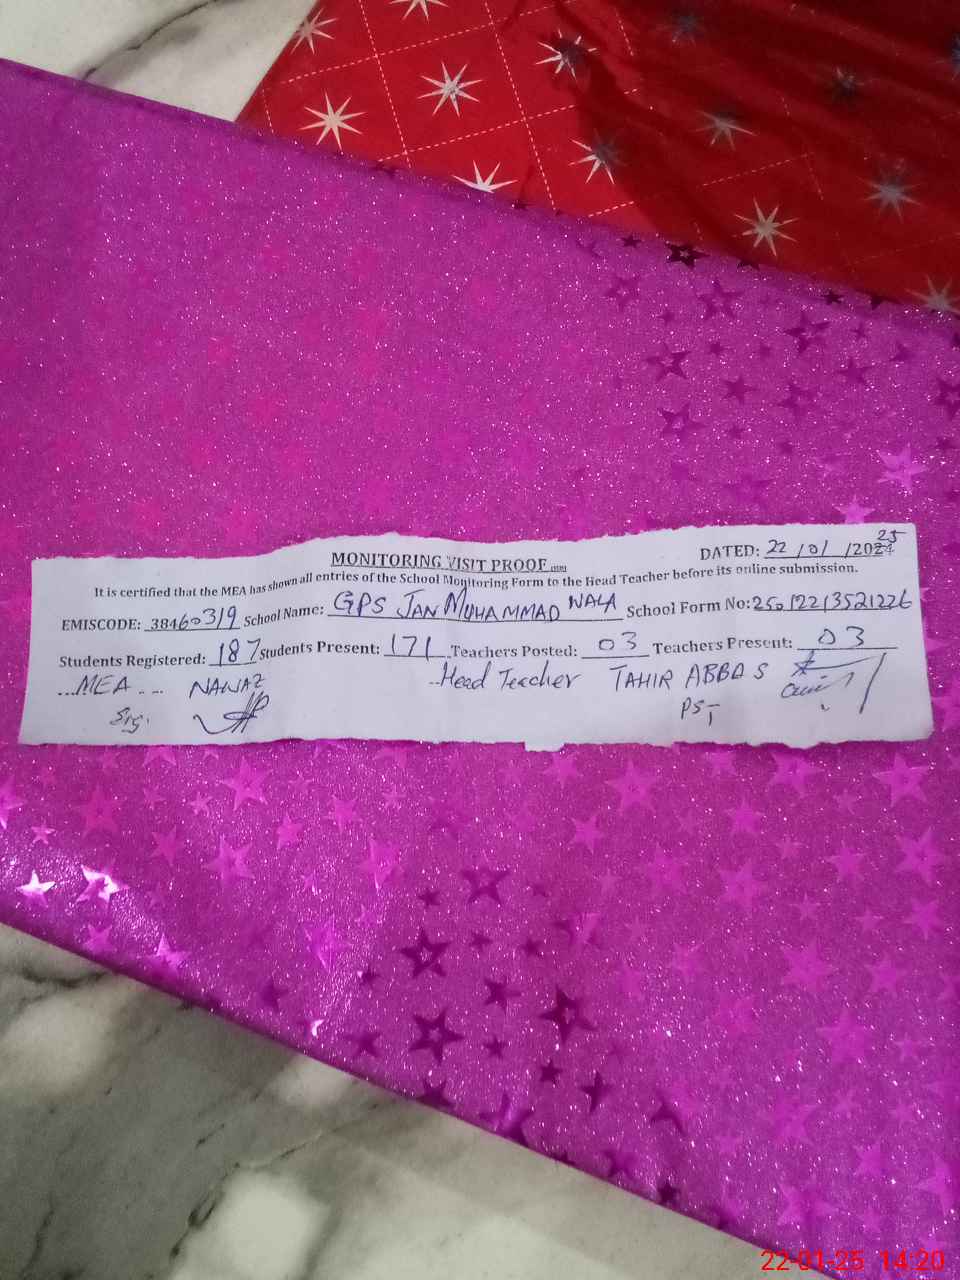 MONITORING VISIT PROOF
DATED: 22/01/2024 25
It is certified that the MEA has shown all entries of the School Monitoring Form to the Head Teacher before its online submission.
EMISCODE: 38460319 School Name: GPS JAN MUHAMMAD NALA School Form No: 25012213521226
Students Registered: 187 Students Present: 171 Teachers Posted: 03 Teachers Present: 03
MEA NAWAZ Head Teacher TAHIR ABBAS
PST
22-01-25 14:20